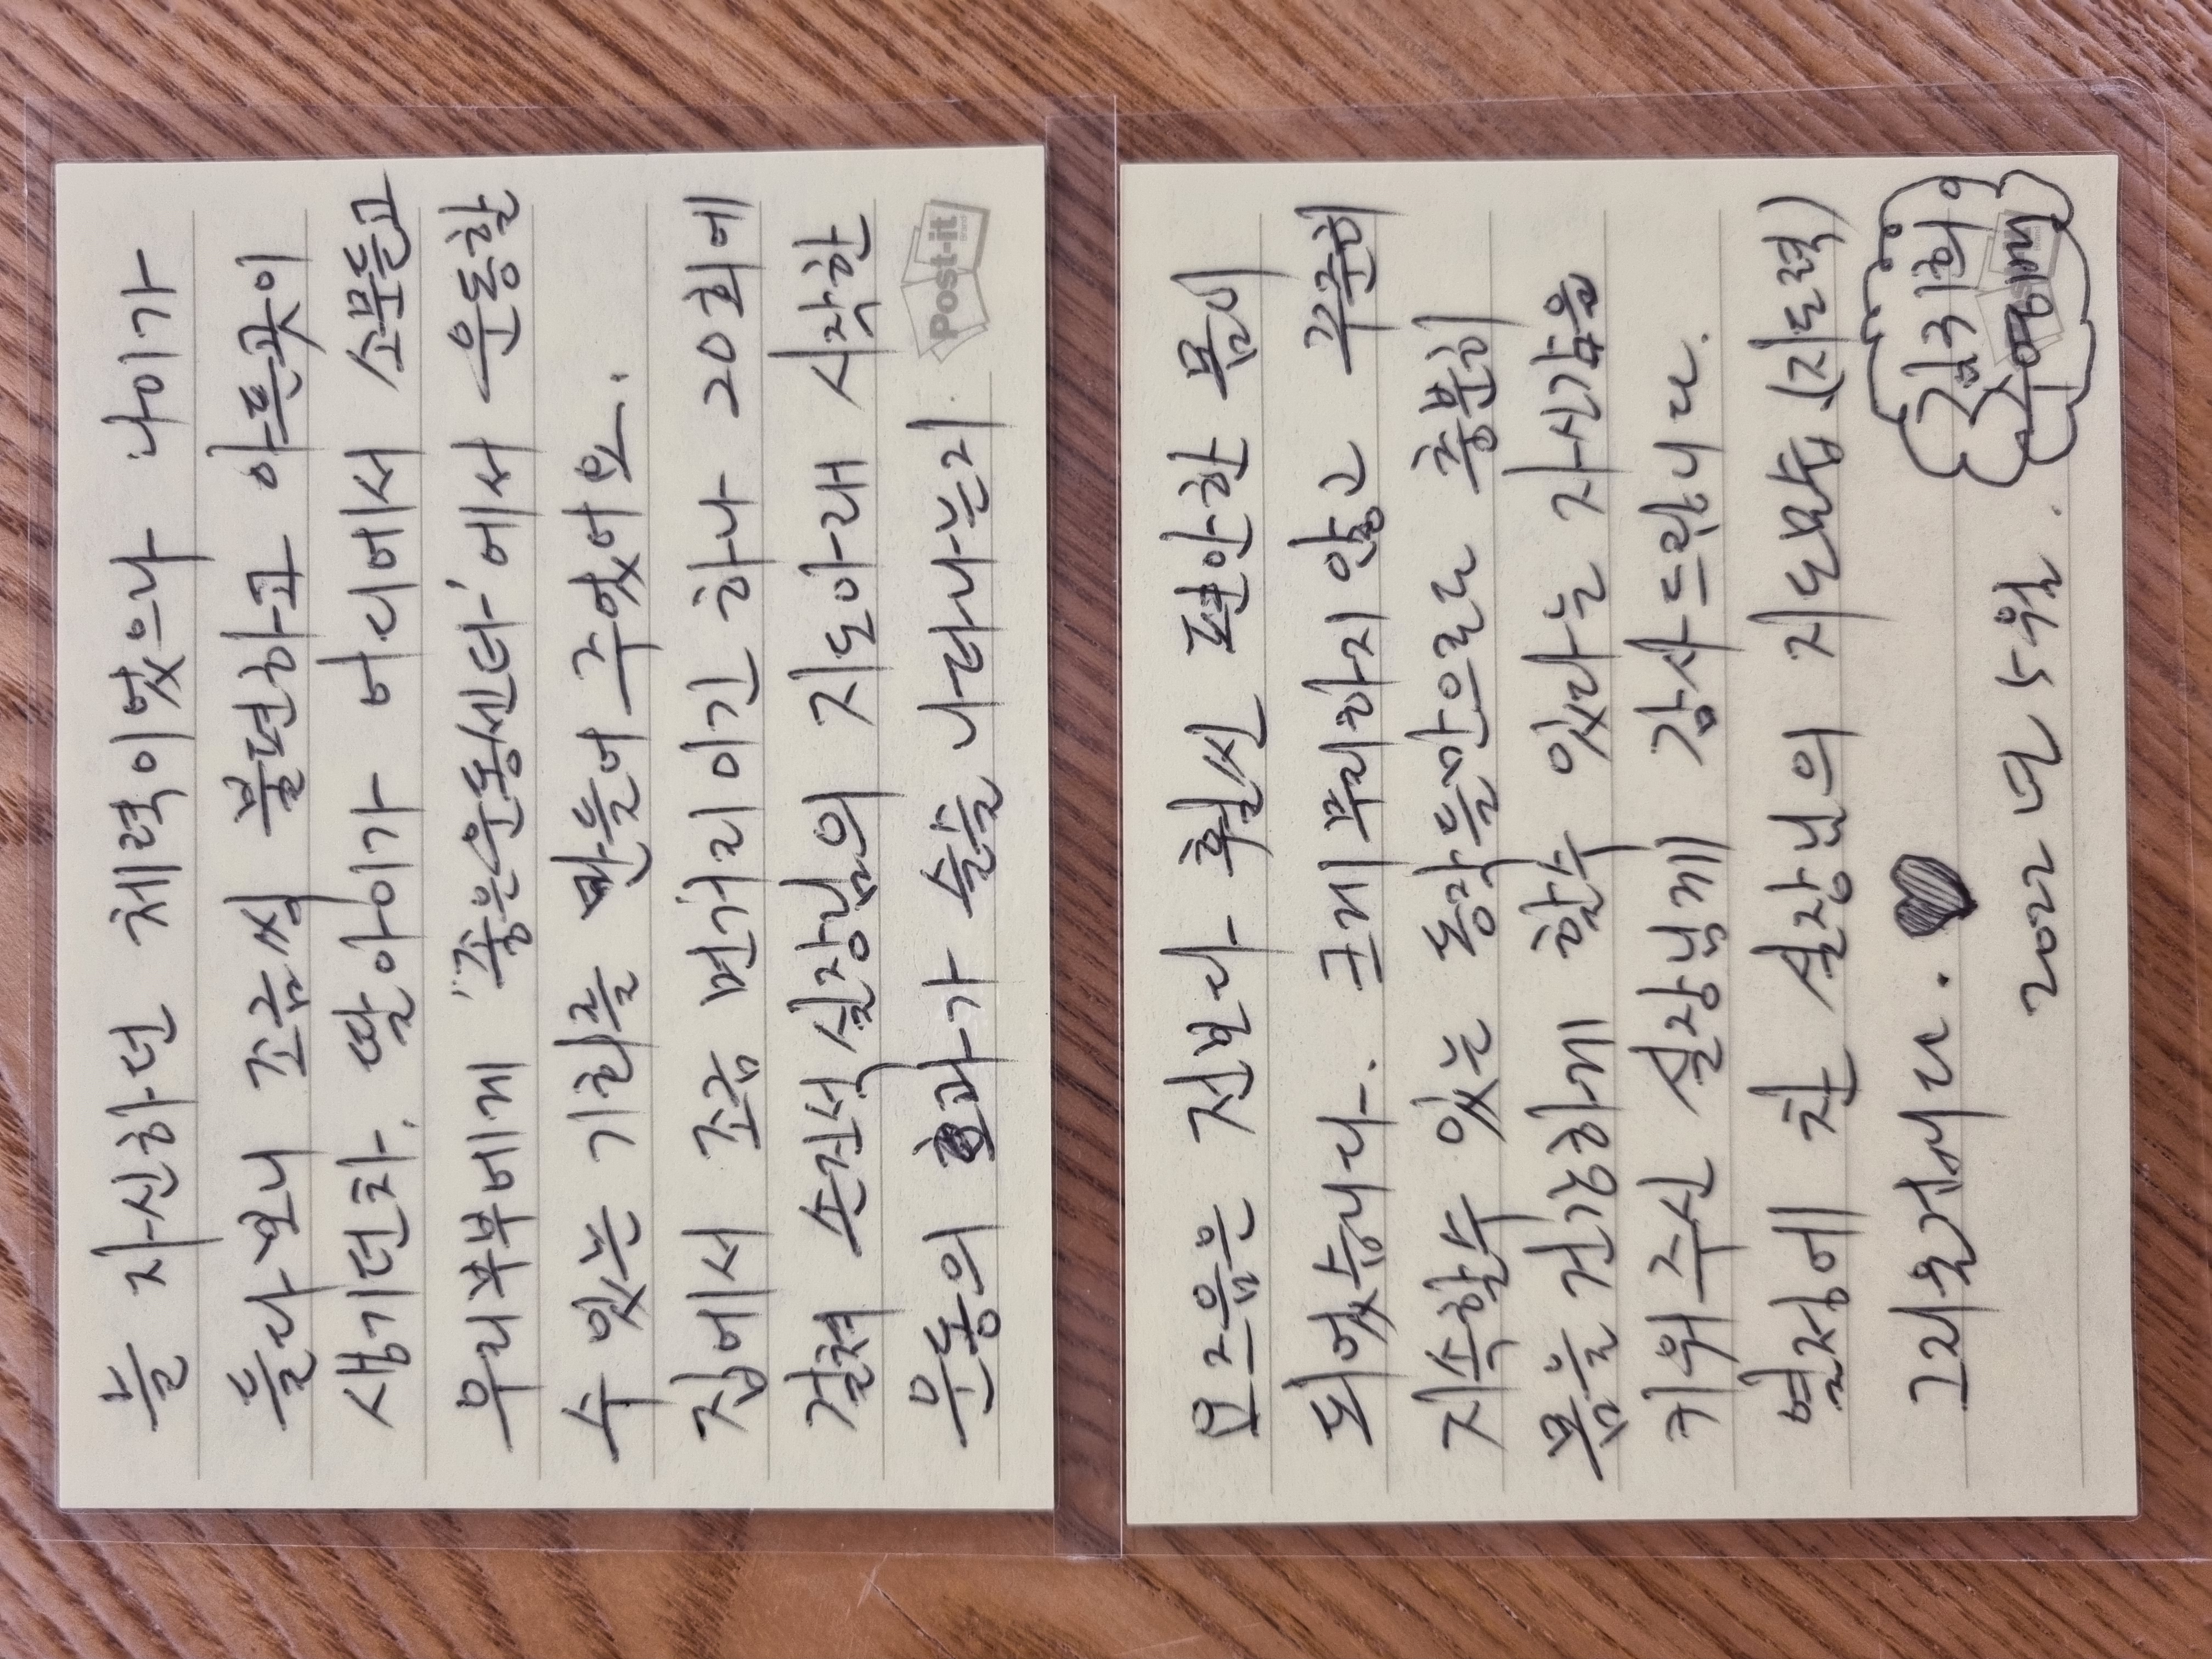 늘 자신하던 체력이었으나 나이가
들다보니 조금씩 불편하고 아픈곳이
생기던차, 딸아이가 어디에서 소문듣고
우리부부에게 '좋은운동센타'에서 운동할
수 있는 기회를 만들어 주었어요.
집에서 조금 먼거리이긴 하나 20회에
걸쳐 손진석실장님의 지도아래 시작한
운동의 효과가 슬슬 나타나는지
Post-it
Brand
요즈음은 전보다 훨씬 편안한 몸이
되었습니다. 크게 무리하지 않고 꾸준히
지속할수 있는 동작들만으로도 충분히
몸을 건강하게 할수 있다는 자신감을
키워주신 실장님께 감사드립니다.
열정에 찬 실장님의 지도모습.(지도력)
그리울겁니다. ♥
2022년 5월.
Brand